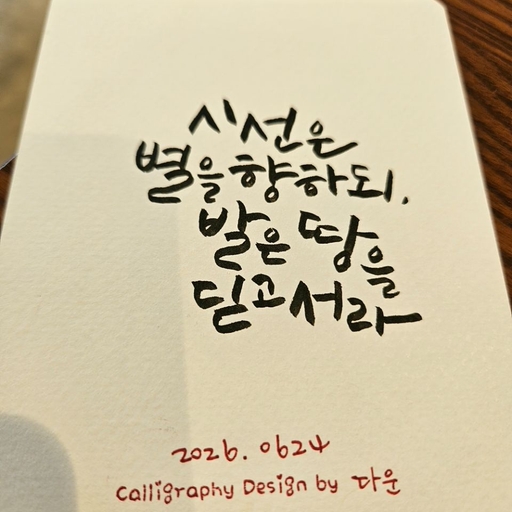 시선은
별을 향하되,
발은 땅을
딛고 서라
2026. 0624
Calligraphy Design by 다운